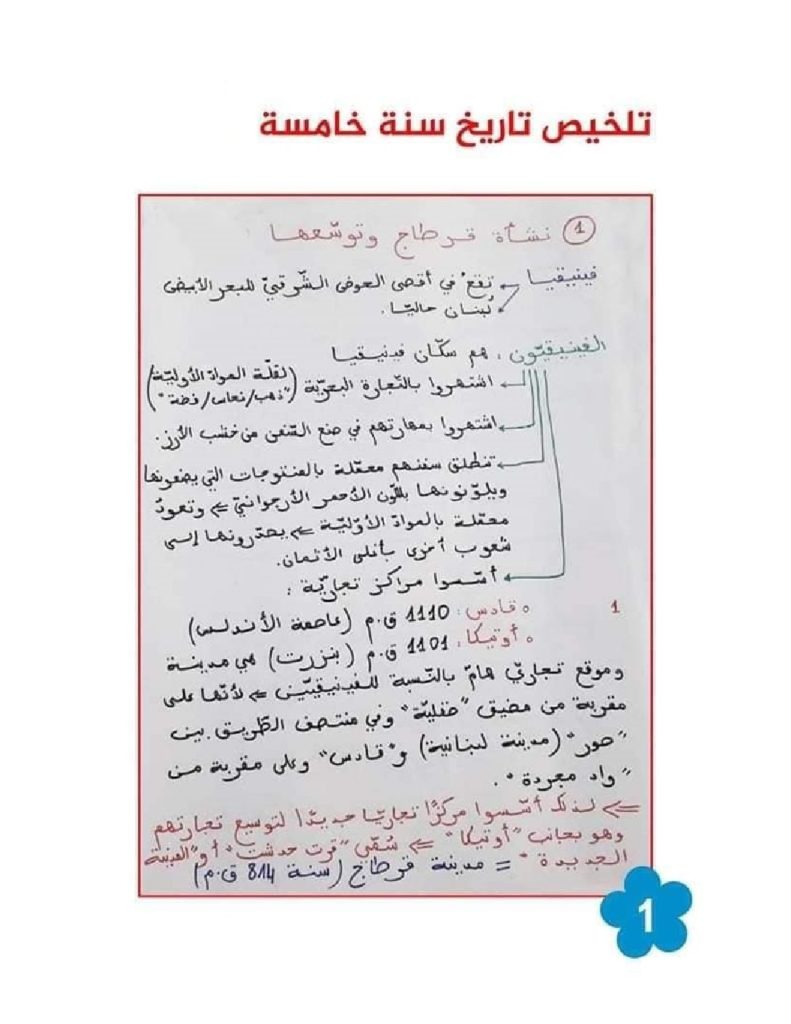 تلخيص تاريخ سنة خامسة
① نشأة قرطاج وتوسّعها
فينيقيا ← تقعُ في أقصى الحوض الشّرقيّ للبحر الأبيض
لُبنان حاليّا.
الفينيقيّون: هم سكّان فينيقيا
اشتهروا بالتّجارة البحريّة (لقلّة المواد الأوليّة/
"ذهب/نحاس/فضة")
اشتهروا بمهارتهم في صنع السّفن من خشب الأرز.
تنطلق سفنهم محمّلة بالمنتوجات التي يصنعونها
ويلوّنونها باللّون الأحمر الأرجوانيّ ⇐ وتعودُ
محمّلة بالموادّ الأوّليّة ⇐ يصدّرونها إلى
شعوب أخرى بأغلى الأثمان.
أسّسوا مراكز تجاريّة :
1 • قادس: 1110 ق.م (عاصمة الأندلس)
• أوتيكا: 1101 ق.م (بنزرت) هي مدينة
وموقع تجاريّ هامّ بالنّسبة للفينيقيّين ⇐ لأنّها على
مقربة من مضيق "صقليّة" وفي منتصف الطّريق بين
"صور" (مدينة لبنانية) و"قادس" وعلى مقربة من
"واد مجردة".
⇐ لذلك أسّسوا مركزًا تجاريّا جديدًا لتوسيع تجارتهم
وهو بجانب "أوتيكا" ⇐ سُمّي "قرت حدشت" أو "المدينة
الجديدة" = مدينة قرطاج (سنة 814 ق.م)
1